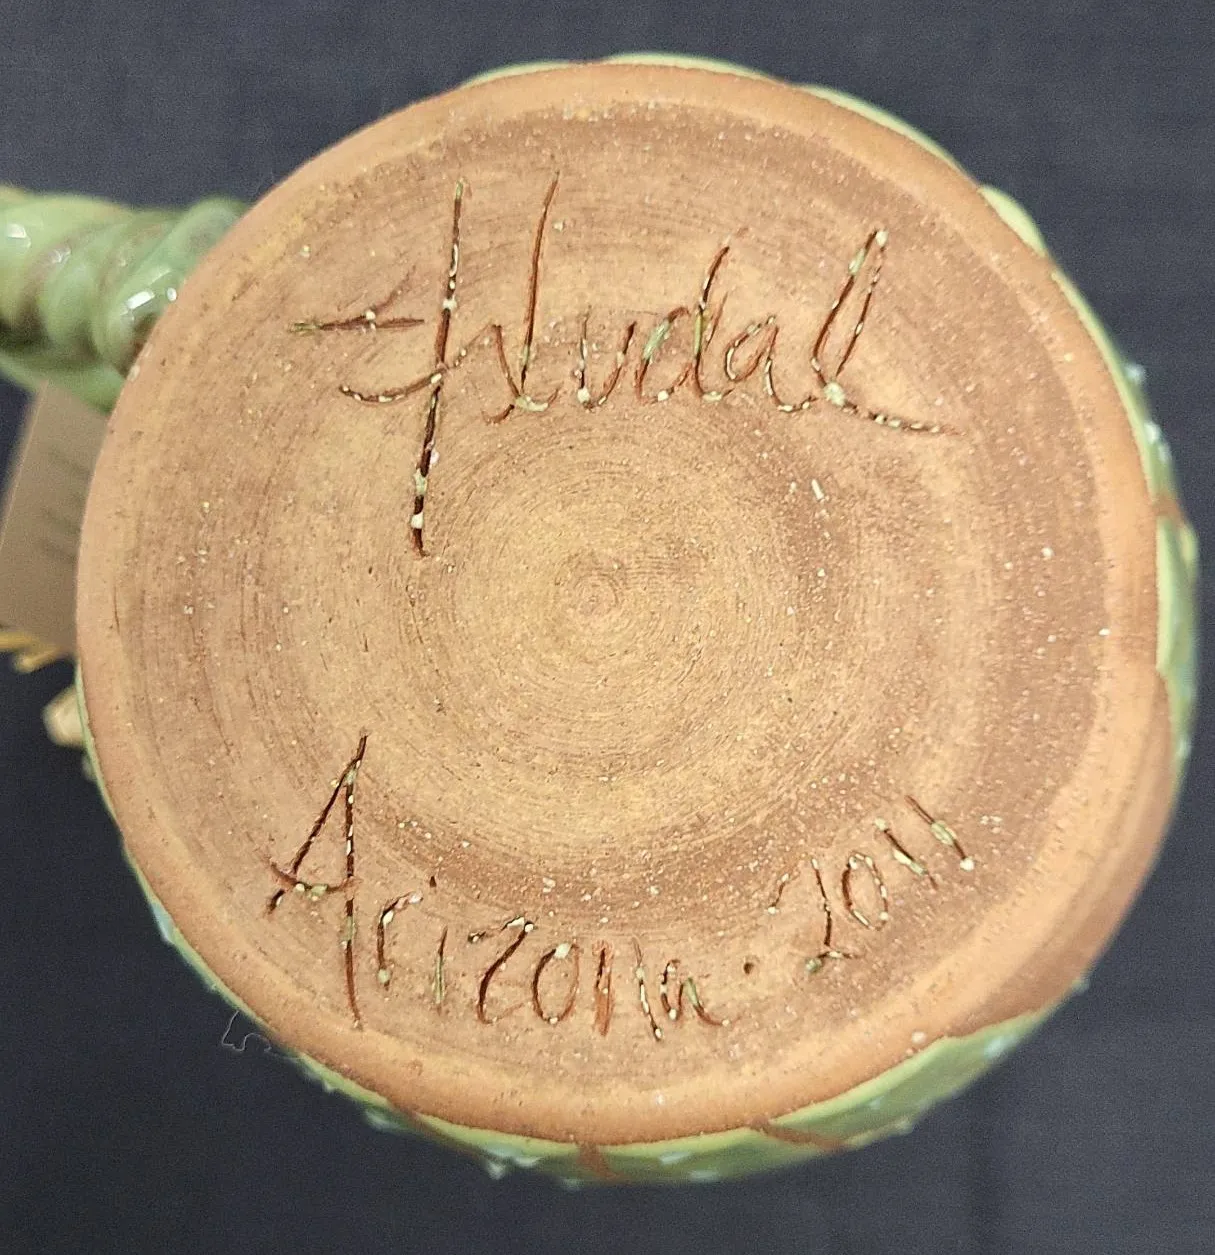 Hudal
Arizona · 2011